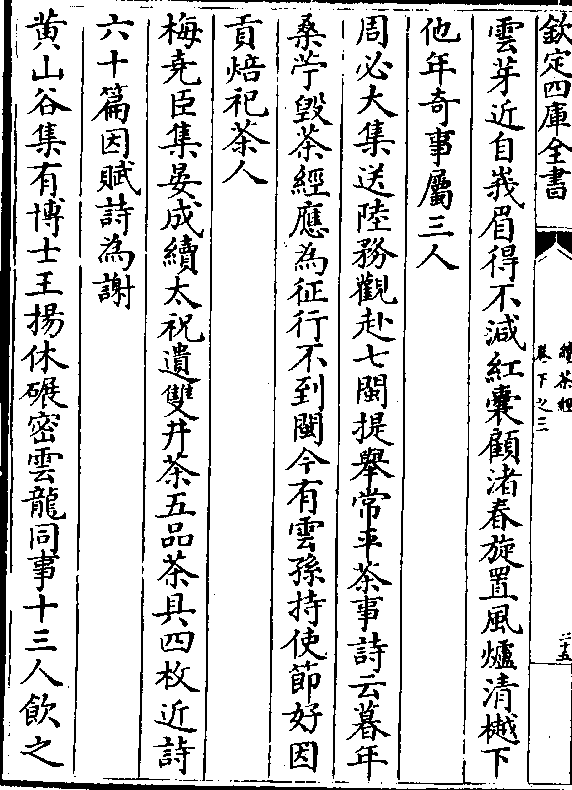 欽定四庫全書
續茶經
卷下之三
二十五
雲芽近自峩眉得不減紅囊顧渚春旋置風爐清樾下
他年奇事屬三人
周必大集送陸務觀赴七閩提舉常平茶事詩云暮年
桑苧毀茶經應為征行不到閩今有雲孫持使節好因
貢焙祀茶人
梅堯臣集晏成續太祝遺雙井茶五品茶具四枚近詩
六十篇因賦詩為謝
黄山谷集有博士王揚休碾密雲龍同事十三人飲之